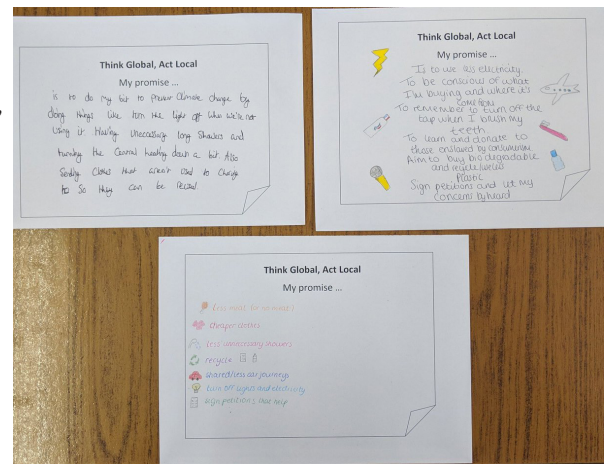 Think Global, Act Local
My promise ...
is to do my bit to prevent Climate change by
doing things like turn the light off when we're not
using it. Having unecassary long showers and
turning the Central heating down a bit. Also
Sending Clothes that aren't used to Charity
to So they can be
Think Global, Act Local
My promise ...
Is to use less electricity.
To be conscious of what
I'm buying and where it's
come from
To remember to turn off the
tap when I brush my
teeth
To learn and donate to
those enslaved by consumerism
Aim to buy biodegradable
and recycle/
Plastic
Sign petitions and let my
concerns be heard
Think Global, Act Local
My promise ...
Less meat
cheaper clothes
less unnecessary showers
recycle
shared/less car journeys
turn off lights and electricity
sign petitions that help